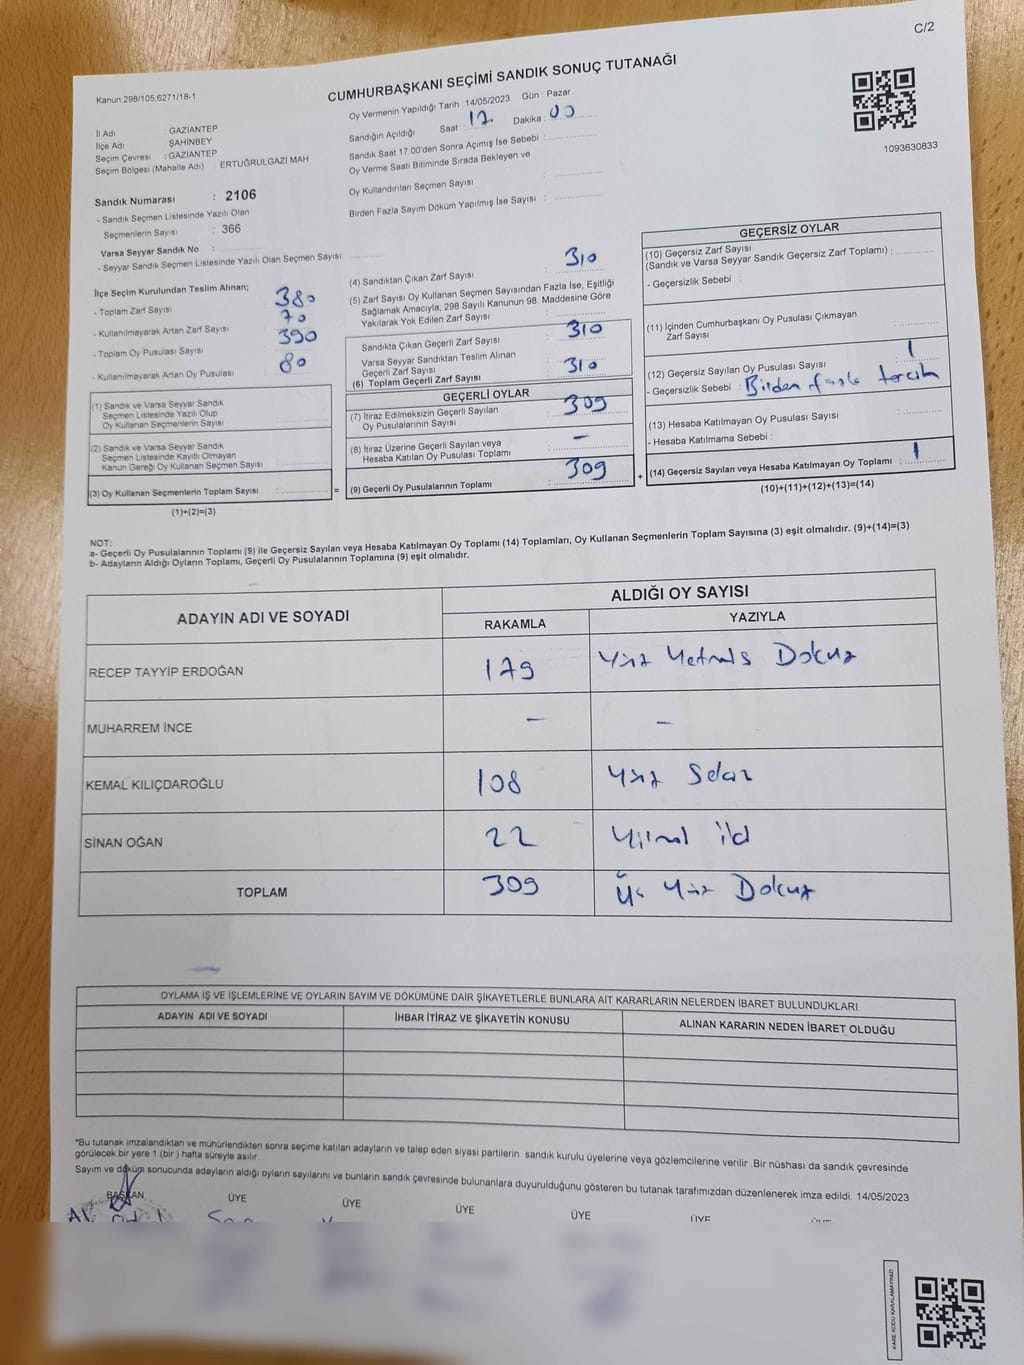 C/2
Kanun:298/105;6271/18-1
CUMHURBAŞKANI SEÇİMİ SANDIK SONUÇ TUTANAĞI
Oy Vermenin Yapıldığı Tarih : 14/05/2023 Gün : Pazar
İl Adı : GAZİANTEP
İlçe Adı : ŞAHİNBEY
Seçim Çevresi : GAZİANTEP
Seçim Bölgesi (Mahalle Adı) ERTUĞRULGAZİ MAH
Sandık Numarası : 2106
- Sandık Seçmen Listesinde Yazılı Olan
Seçmenlerin Sayısı : 366
Varsa Seyyar Sandık No :
- Seyyar Sandık Seçmen Listesinde Yazılı Olan Seçmen Sayısı:
Sandığın Açıldığı Saat : 17 Dakika : 00
Sandık Saat 17.00'den Sonra Açımış İse Sebebi :
Oy Verme Saati Bitiminde Sırada Bekleyen ve
Oy Kullandırılan Seçmen Sayısı :
Birden Fazla Sayım Döküm Yapılmış İse Sayısı :
1093630833
İlçe Seçim Kurulundan Teslim Alınan;
- Toplam Zarf Sayısı : 380
- Kullanılmayarak Artan Zarf Sayısı : 70
- Toplam Oy Pusulası Sayısı : 390
- Kullanılmayarak Artan Oy Pusulası : 80
(1) Sandık ve Varsa Seyyar Sandık
Seçmen Listesinde Yazılı Olup
Oy Kullanan Seçmenlerin Sayısı :
(2) Sandık ve Varsa Seyyar Sandık
Seçmen Listesinde Kayıtlı Olmayan
Kanun Gereği Oy Kullanan Seçmen Sayısı :
(3) Oy Kullanan Seçmenlerin Toplam Sayısı : =
(1)+(2)=(3)
(4) Sandıktan Çıkan Zarf Sayısı : 310
(5) Zarf Sayısı Oy Kullanan Seçmen Sayısından Fazla İse, Eşitliği
Sağlamak Amacıyla; 298 Sayılı Kanunun 98. Maddesine Göre
Yakılarak Yok Edilen Zarf Sayısı :
Sandıkta Çıkan Geçerli Zarf Sayısı : 310
Varsa Seyyar Sandıktan Teslim Alınan
Geçerli Zarf Sayısı :
(6) Toplam Geçerli Zarf Sayısı : 310
GEÇERLİ OYLAR
(7) İtiraz Edilmeksizin Geçerli Sayılan
Oy Pusulasının Sayısı : 309
(8) İtiraz Üzerine Geçerli Sayılan veya
Hesaba Katılan Oy Pusulası Toplamı : -
(9) Geçerli Oy Pusulalarının Toplamı : 309 +
GEÇERSİZ OYLAR
(10) Geçersiz Zarf Sayısı
(Sandık ve Varsa Seyyar Sandık Geçersiz Zarf Toplamı) :
- Geçersizlik Sebebi :
(11) İçinden Cumhurbaşkanı Oy Pusulası Çıkmayan
Zarf Sayısı :
(12) Geçersiz Sayılan Oy Pusulası Sayısı : 1
- Geçersizlik Sebebi : Birden fazla tercih
(13) Hesaba Katılmayan Oy Pusulası Sayısı :
- Hesaba Katılmama Sebebi :
(14) Geçersiz Sayılan veya Hesaba Katılmayan Oy Toplamı : 1
(10)+(11)+(12)+(13)=(14)
NOT:
a- Geçerli Oy Pusulalarının Toplamı (9) ile Geçersiz Sayılan veya Hesaba Katılmayan Oy Toplamı (14) Toplamları, Oy Kullanan Seçmenlerin Toplam Sayısına (3) eşit olmalıdır. (9)+(14)=(3)
b- Adayların Aldığı Oyların Toplamı, Geçerli Oy Pusulalarının Toplamına (9) eşit olmalıdır.
ADAYIN ADI VE SOYADI ALDIĞI OY SAYISI
RAKAMLA YAZIYLA
RECEP TAYYİP ERDOĞAN 179 Yüz Yetmiş Dokuz
MUHARREM İNCE - -
KEMAL KILIÇDAROĞLU 108 Yüz Sekiz
SİNAN OĞAN 22 Yirmi iki
TOPLAM 309 Üç Yüz Dokuz
OYLAMA İŞ VE İŞLEMLERİNE VE OYLARIN SAYIM VE DÖKÜMÜNE DAİR ŞİKAYETLERLE BUNLARA AİT KARARLARIN NELERDEN İBARET BULUNDUKLARI
ADAYIN ADI VE SOYADI İHBAR İTİRAZ VE ŞİKAYETİN KONUSU ALINAN KARARIN NEDEN İBARET OLDUĞU
*Bu tutanak imzalandıktan ve mühürlendikten sonra seçime katılan adayların ve talep eden siyasi partilerin sandık kurulu üyelerine veya gözlemcilerine verilir .Bir nüshası da sandık çevresinde
görülecek bir yere 1 (bir ) hafta süreyle asılır.
Sayım ve döküm sonucunda adayların aldığı oyların sayılarını ve bunların sandık çevresinde bulunanlara duyurulduğunu gösteren bu tutanak tarafımızdan düzenlenerek imza edildi. 14/05/2023
BAŞKAN ÜYE ÜYE ÜYE ÜYE ÜYE
KARE KODU KARALAMAYINIZ!